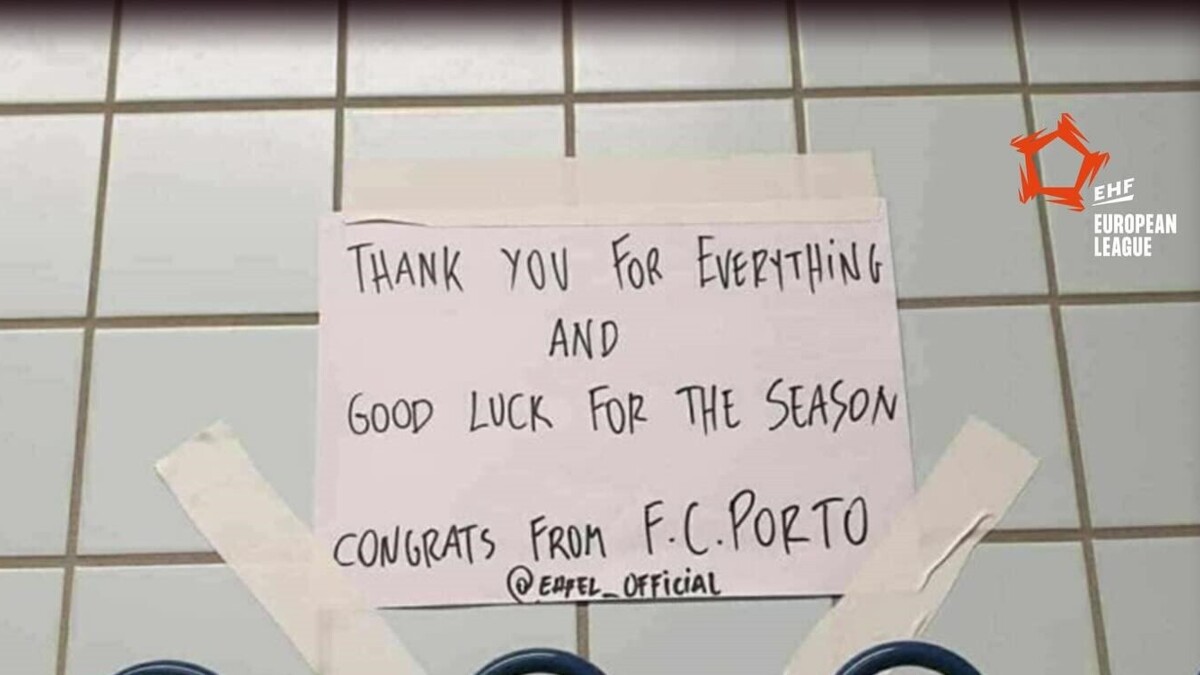 THANK YOU FOR EVERYTHING
AND
GOOD LUCK FOR THE SEASON
CONGRATS FROM F.C. PORTO
@EHFEL_OFFICIAL
EHF
EUROPEAN
LEAGUE